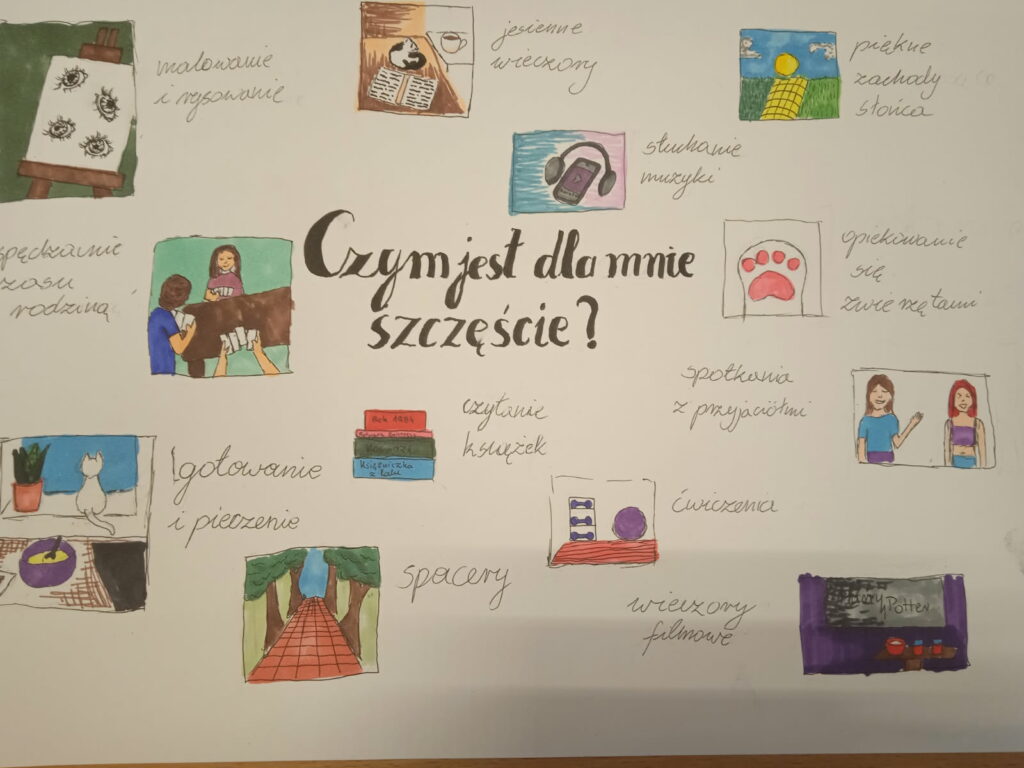 malowanie
i rysowanie
jesienne
wieczory
piękne
zachody
słońca
słuchanie
muzyki
Czym jest dla mnie
szczęście?
spędzanie
czasu
rodziną
opiekowanie
się
zwierzętami
spotkania
z przyjaciółmi
Rok 1984
Księżniczka
z lodu
czytanie
książek
gotowanie
i pieczenie
ćwiczenia
spacery
wieczory
filmowe
Harry
Potter